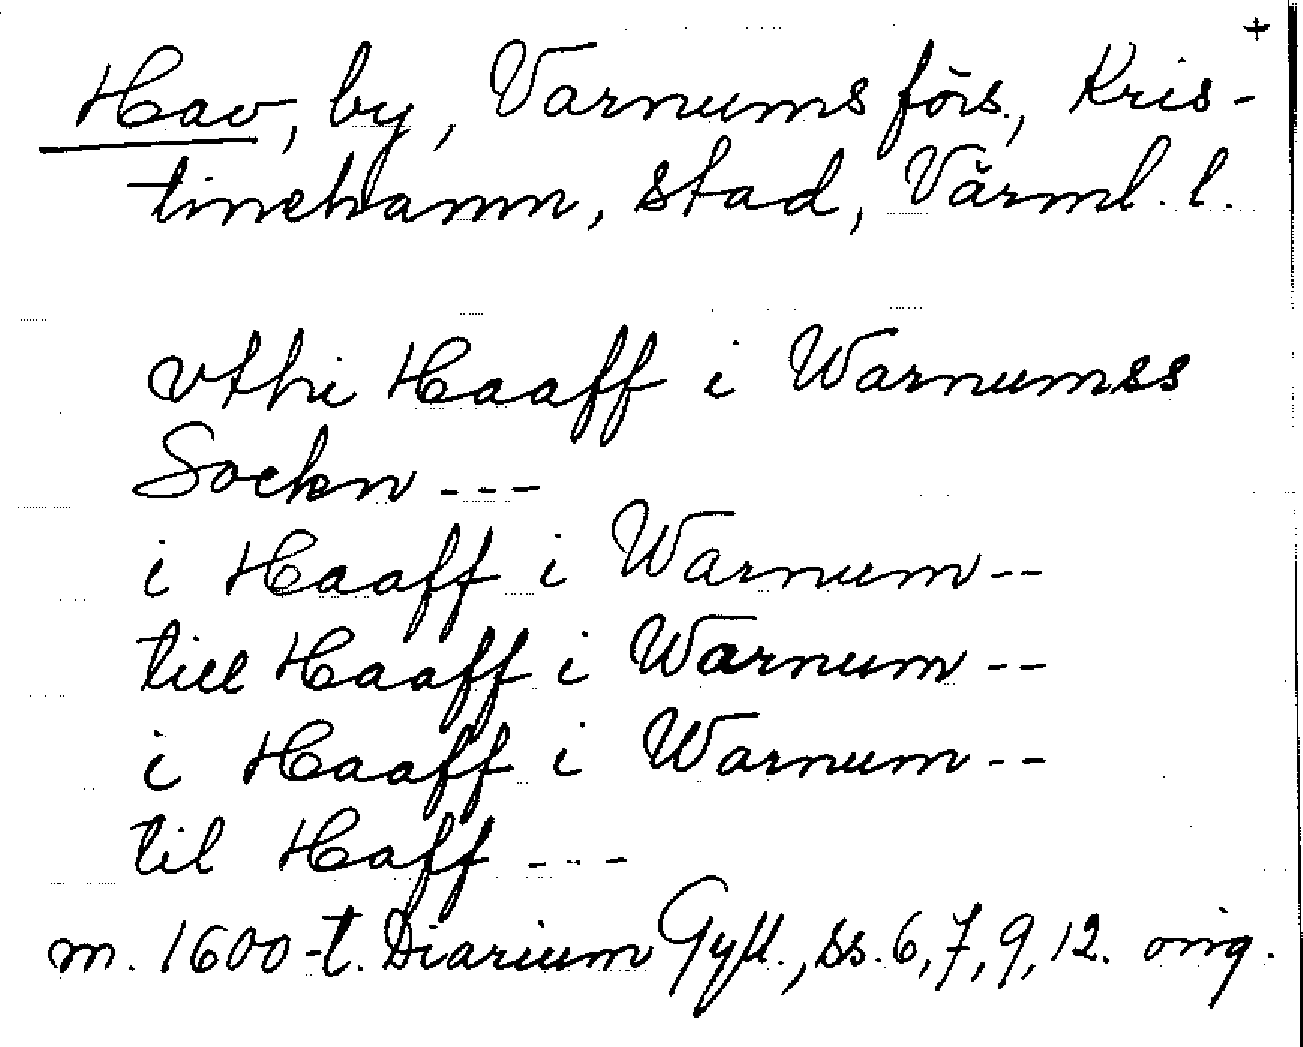 +
Hav, by, Varnums förs., Kris-
tinehamn, stad, Värml. l.
vthi Haaff i Warnumss
Sockn ---
i Haaff i Warnum --
till Haaff i Warnum --
i Haaff i Warnum --
til Haff ---
m. 1600-t. Diarium Gyll., ss. 6, 7, 9, 12. orig.